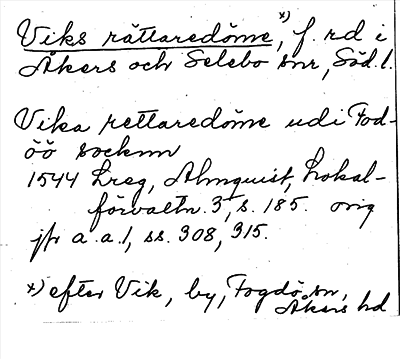 Viks rättaredöme*), f. rd i
Åkers och Selebo snr, Söd. l.
Vika rettaredöme udi Fod-
öö socknn
1544 Lreg, Almquist, Lokal-
förvaltn. 3, s. 185. orig
jfr a.a. 1, ss. 308, 315.
*) efter Vik, by, Fogdö sn,
Åkers hd